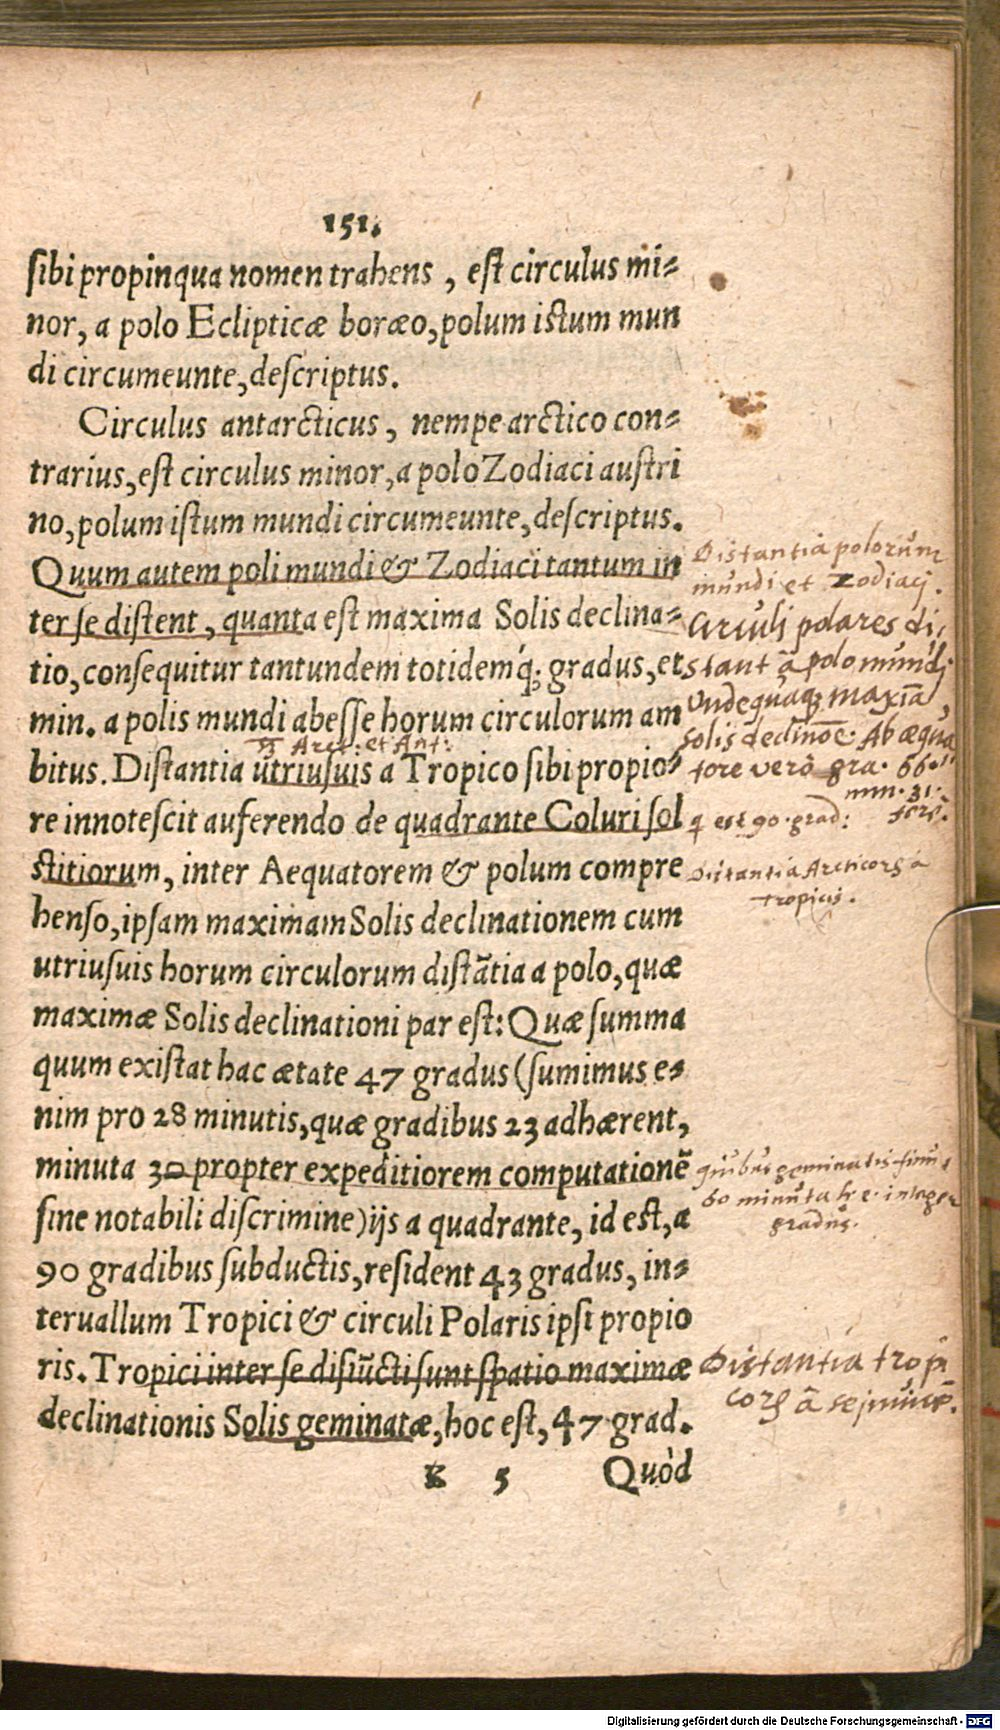 151.
sibi propinqua nomen trahens, est circulus mi-
nor, a polo Eclipticæ boræo, polum istum mun
di circumeunte, descriptus.
Circulus antarcticus, nempe arctico con-
trarius, est circulus minor, a polo Zodiaci austri
no, polum istum mundi circumeunte, descriptus.
Quum autem poli mundi & Zodiaci tantum in
ter se distent, quanta est maxima Solis declina-
tio, consequitur tantundem totidemq́; gradus, et
min. a polis mundi abesse horum circulorum am
bitus. Distantia utriusuis a Tropico sibi propio-
re innotescit auferendo de quadrante Coluri sol
stitiorum, inter Aequatorem & polum compre
henso, ipsam maximam Solis declinationem cum
utriusuis horum circulorum distãtia a polo, quæ
maximæ Solis declinationi par est: Quæ summa
quum existat hac ætate 47 gradus (sumimus e-
nim pro 28 minutis, quæ gradibus 23 adhærent,
minuta 30 propter expeditiorem computationẽ
sine notabili discrimine) ijs a quadrante, id est, a
90 gradibus subductis, resident 43 gradus, in-
teruallum Tropici & circuli Polaris ipsi propio
ris. Tropici inter se disiũcti sunt spatio maximæ
declinationis Solis geminatæ, hoc est, 47 grad.
K 5 Quòd
Arct: et Ant:
Distantia polorum
mundi et Zodiaci.
Circuli polares di-
stant â polo mundi
Undequaq; maxiã
solis declinoẽ. Ab æqua
tore verò gra. 66.
min. 31.
est 90. grad: ferè.
Distantia Arcticorum â
tropicis.
quibus geminatis sunt
60 minuta h. e. integer
gradus.
Distantia tropi
corum â sejnuicẽ.
Digitalisierung gefördert durch die Deutsche Forschungsgemeinschaft - DFG